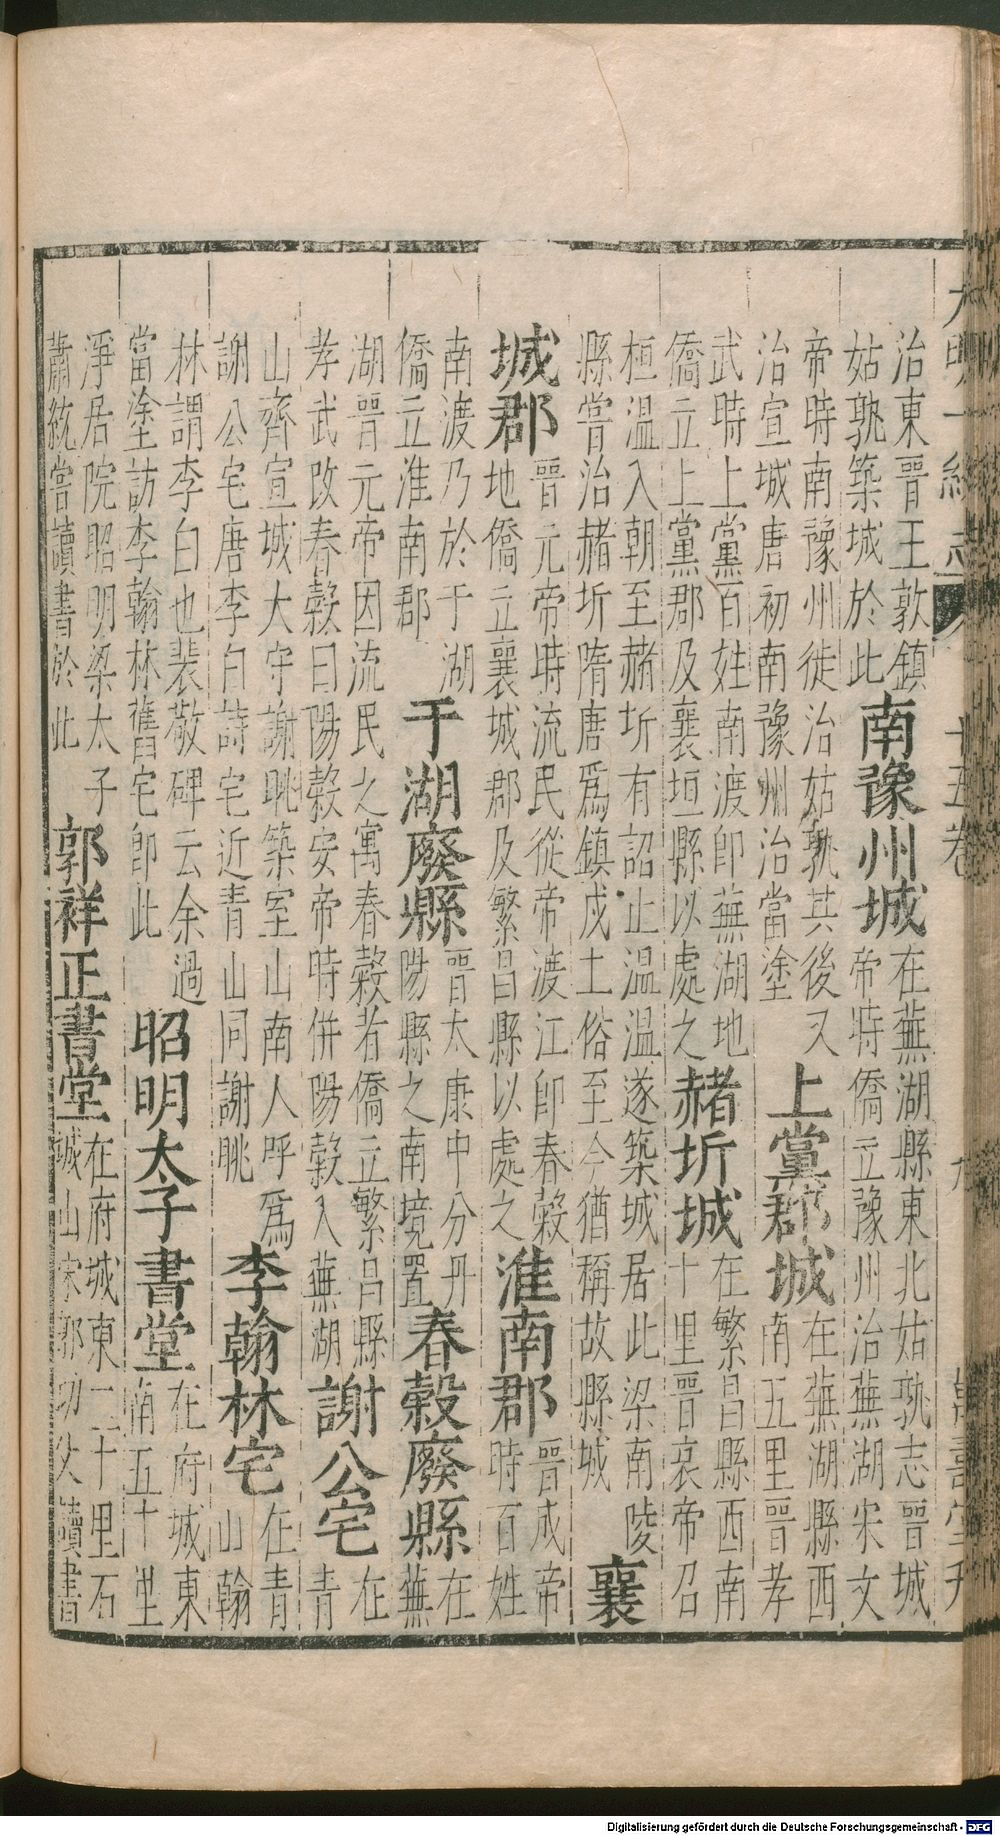 大明一統志 十五卷 九
治東晉王敦鎮
姑孰築城於此
南豫州城
在蕪湖縣東北姑孰志晉城
帝時僑立豫州治蕪湖宋文
帝時南豫州徙治姑孰其後又
治宣城唐初南豫州治當塗
上黨郡城
在蕪湖縣西
南五里晉孝
武時上黨百姓南渡即蕪湖地
僑立上黨郡及襄垣縣以處之
赭圻城
在繁昌縣西南
十里晉哀帝召
桓温入朝至赭圻有詔止温温遂築城居此梁南陵
縣嘗治赭圻隋唐爲鎮戍土俗至今猶稱故縣城
襄
城郡
晉元帝時流民從帝渡江即春穀
地僑立襄城郡及繁昌縣以處之
淮南郡
晉成帝
時百姓
南渡乃於于湖
僑立淮南郡
于湖廢縣
晉太康中分丹
陽縣之南境置
春穀廢縣
在
蕪
湖晉元帝因流民之寓春穀者僑立繁昌縣
孝武改春穀曰陽穀安帝時併陽穀入蕪湖
謝公宅
在
青
山齊宣城太守謝眺築室山南人呼爲
謝公宅唐李白詩宅近青山同謝眺
李翰林宅
在青
山翰
林謂李白也裴敬碑云余過
當塗訪李翰林舊宅即此
昭明太子書堂
在府城東
南五十里
淨居院昭明梁太子
蕭統嘗讀書於此
郭祥正書堂
在府城東二十里石
城山宋郭功父讀書